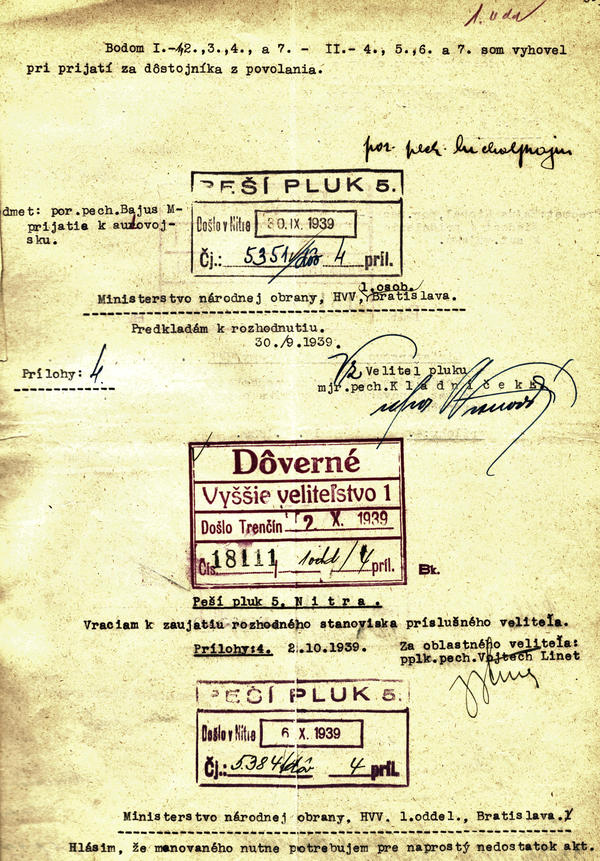 1. odd
Bodom I.-1,2.,3.,4., a 7. - II.- 4., 5.,6. a 7. som vyhovel
pri prijatí za dôstojníka z povolania.
por. pech.
PEŠÍ PLUK 5.
Došlo v Nitre 30. IX. 1939
Čj.: 5351/dôv 4 príl.
dmet: por.pech.Bajus M-
prijatie k autovoj-
sku.
1.osob.
Ministerstvo národnej obrany, HVV, Bratislava.
Predkladám k rozhodnutiu.
30./9.1939.
Prílohy: 4.
Vz Veliteľ pluku
mjr.pech.Kladníček
Dôverné
Vyššie veliteľstvo 1
Došlo Trenčín 2. X. 1939
Čís. 18111/ 1odd/4 príl.
Bk.
Peší pluk 5. Nitra.
Vraciam k zaujatiu rozhodného stanoviska príslušného veliteľa.
Prílohy:4. 2.10.1939. Za oblastného veliteľa:
pplk.pech.Vojtech Linet
PEŠÍ PLUK 5.
Došlo v Nitre 6 X. 1939
Čj.: 5384/dôv 4 príl.
Ministerstvo národnej obrany, HVV. 1.oddel., Bratislava.
Hlásim, že menovaného nutne potrebujem pre naprostý nedostatok akt.